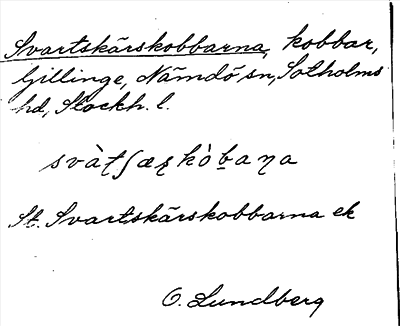 Svartskärskobbarna, kobbar,
Gillinge, Nämdö sn, Sotholms
hd, Stockh. l.
svàƫʃæʐkòb̠aṇa
St. Svartskärskobbarna ek
O. Lundberg